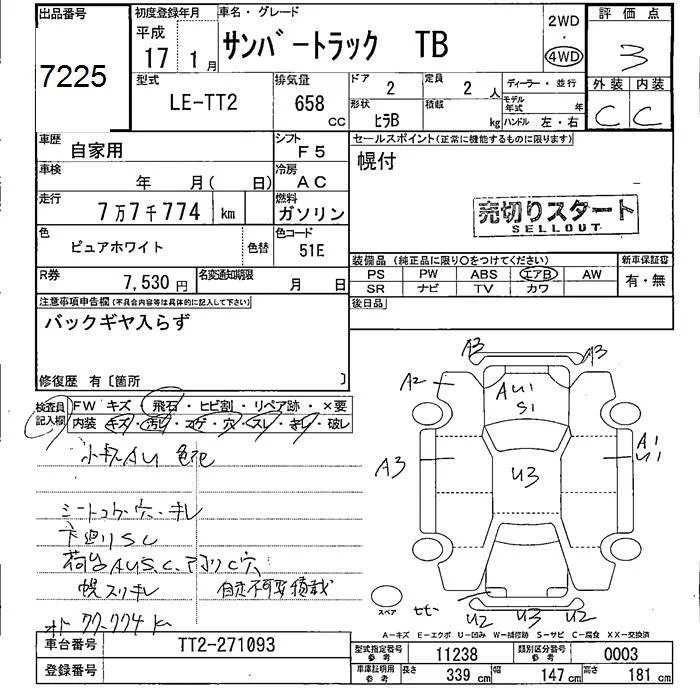 出品番号
7225
初度登録年月
平成
17 1 月
車名・グレード
サンバートラック TB
2WD
・
4WD
評価点
3
外装 内装
C C
型式
LE-TT2
排気量
658 CC
ドア
2
定員
2 人
形状
ヒラB
積載
kg
ディーラー・並行
モデル年式 年
ハンドル 左・右
車歴
自家用
シフト
F5
車検
年 月( 日)
冷房
AC
走行
7万7千774 km
燃料
ガソリン
色
ピュアホワイト
色替
色コード
51E
R券
7,530 円
名変通知期限
月 日
セールスポイント(正常に機能するものに限ります)
幌付
売切りスタート
SELLOUT
装備品 (純正品に限り○をつけてください)
新車保証書
PS PW ABS エアB AW
SR ナビ TV カワ
有・無
後日品
注意事項申告欄(不具合内容等は具体的に記入して下さい)
バックギヤ入らず
修復歴 有〔箇所 〕
検査員記入欄
FW キズ・飛石・ヒビ割・リペア跡・×要
内装 キズ・汚れ・コゲ・穴・スレ・キレ・破レ
小キズAU
シートコゲ・穴・キレ
下廻りSC
荷台AUS.C.アオリC穴
幌スリキレ 自走不可要積載
オド 77,774 km
A3 A3
A2
AU1
S1
A3
U3
A1
U1
U2 U3 U2
スペア
A-キズ E-エクボ U-凹み W-補修跡 S-サビ C-腐食 XX-交換済
車台番号
TT2-271093
登録番号
型式指定番号
参考
11238
類別区分番号
参考
0003
車庫証明用
参考
長さ 339 cm 幅 147 cm 高さ 181 cm